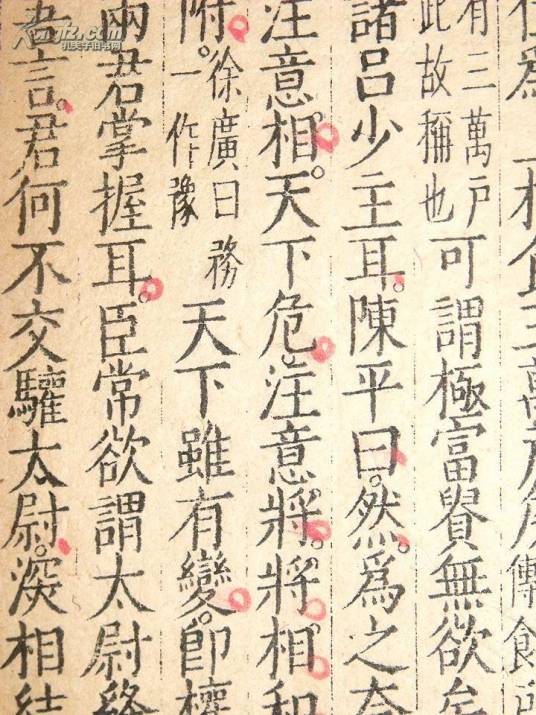 相食三萬
有三萬户
此故稱也
可謂極富貴無欲矣
諸呂少主耳。陳平曰。然。爲之奈
注意相。天下危。注意將。將相和
附。
徐廣曰務
一作豫
天下雖有變。卽權
兩君掌握耳。臣常欲謂太尉絳
君言。君何不交驩太尉。深相結